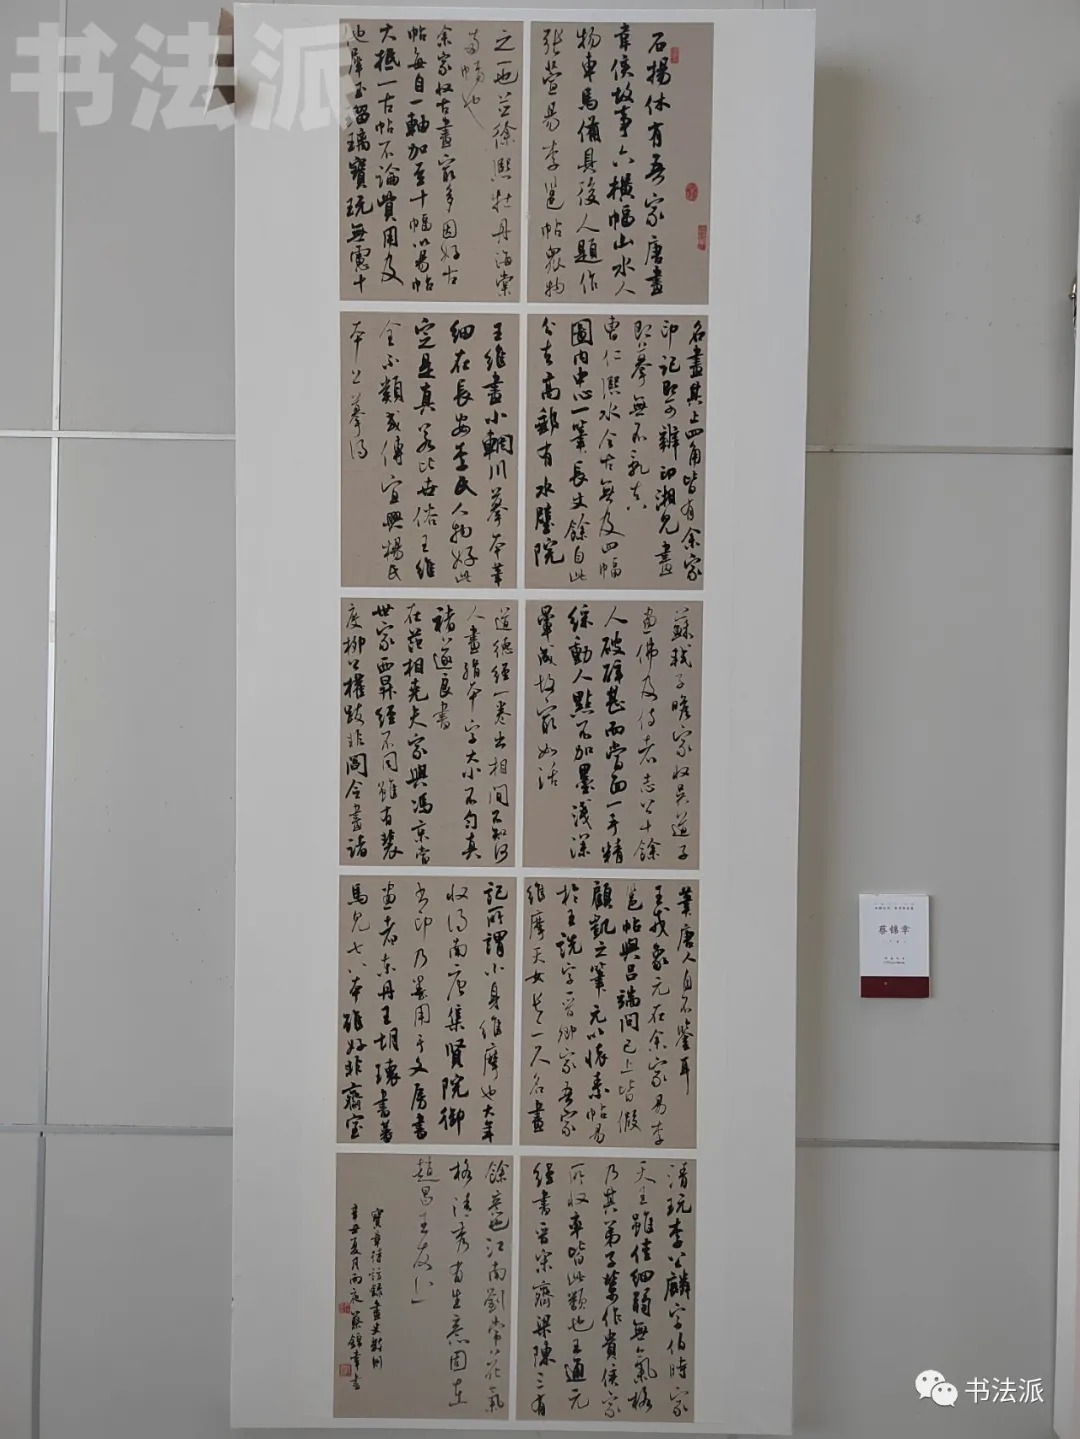 书法派
石揚休有吾家唐畫
韋侯故事六橫幅山水人
物車馬備具後人題作
張萱易李邕帖衆物
之一也並徐熙牡丹海棠
兩幅也
余家收古畫最多因好古
帖每自一軸加至十幅以易帖
大抵一古帖不論貲用及
他犀玉瑠璃寶玩無慮十
名畫其上四角皆有余家
印記即可辨
曹仁熙水今古無及四幅
圖內中心一筆長丈餘自此
分去高郵有水壁院
王維畫小輞川摹本筆
細在長安李氏人物好此
定是真若比世俗王維
全不類或傳宜興楊氏
本上摹得
蘇軾子瞻家收吳道子
畫佛及侍者志公十餘
人破碎甚而當面一手精
彩動人點不加墨淺深
暈成故最如活
道德經一卷出相間不知何
人畫絹本字大小不勻真
褚遂良書
在范相堯夫家與馮京當
世家西昇經不同雖有裝
度柳公權跋非閻令畫諸
筆唐人自不鑒耳
王戎象元在余家易李
邕帖與呂端問已上皆假
顧凱之筆元以懷素帖易
於王詵字晉卿家吾家
維摩天女長一尺名畫
記所謂小身維摩也大年
收得南唐集賢院御
書印乃墨用于文房書
畫者東丹王胡瓌蕃
馬見七八本雖好非齋室
清玩李公麟字伯時家
天王雖佳細弱無氣格
乃其弟子輩作貴侯家
所收率皆此類也王通元
經書晉宋齊梁陳亡有
餘意也江南劉常花氣
格清秀有生意固在
趙昌王友上
寶章待訪錄畫史數則
辛丑夏月雨夜蔡錦幸書
蔡锦幸
书法派